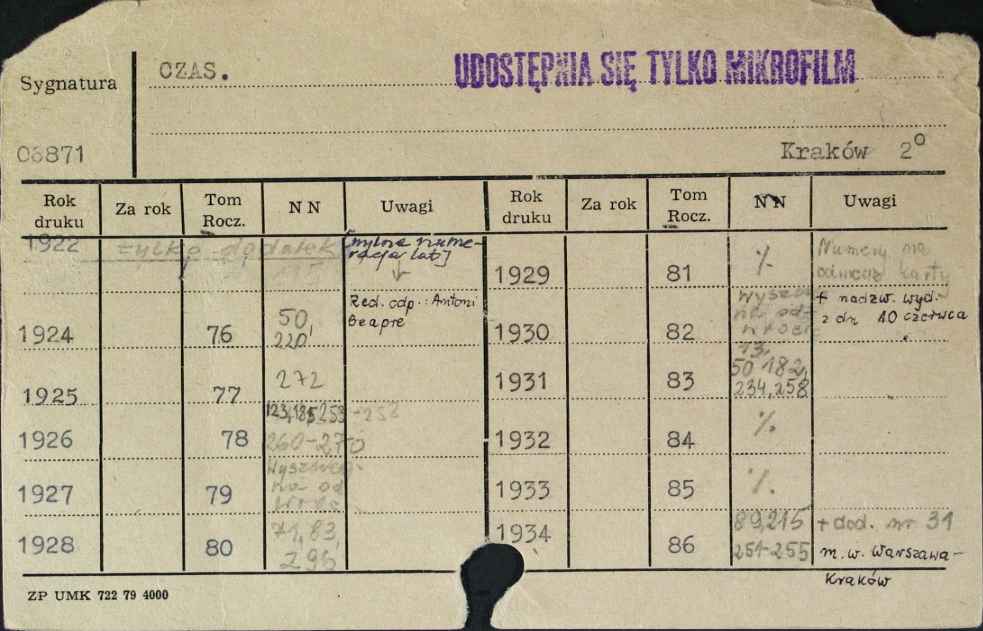 Sygnatura
CZAS.
UDOSTĘPNIA SIĘ TYLKO MIKROFILM
03871
Kraków 2°
Rok druku Za rok Tom Rocz. NN Uwagi
1922 tylko dodatek [mylna nume-
racja lat]
Red. odp.: Antoni
Beapre
1924 76 50,
220
1925 77 272
1926 78 123, 185, 253 - 258
260-270
1927 79 Wyszcze.
na od
1928 80 71, 83,
296
Rok druku Za rok Tom Rocz. NN Uwagi
1929 81 %
Numery na
odwrocie karty
1930 82 Wyszcz
na od-
wroci
+ nadzw. wyd.
z dn 10 czerwca
1931 83 13,
50 182,
234, 258
1932 84 %
1933 85 %
1934 86 89, 215
254-255
+ dod. nr 31
m.w. Warszawa-
Kraków
ZP UMK 722 79 4000